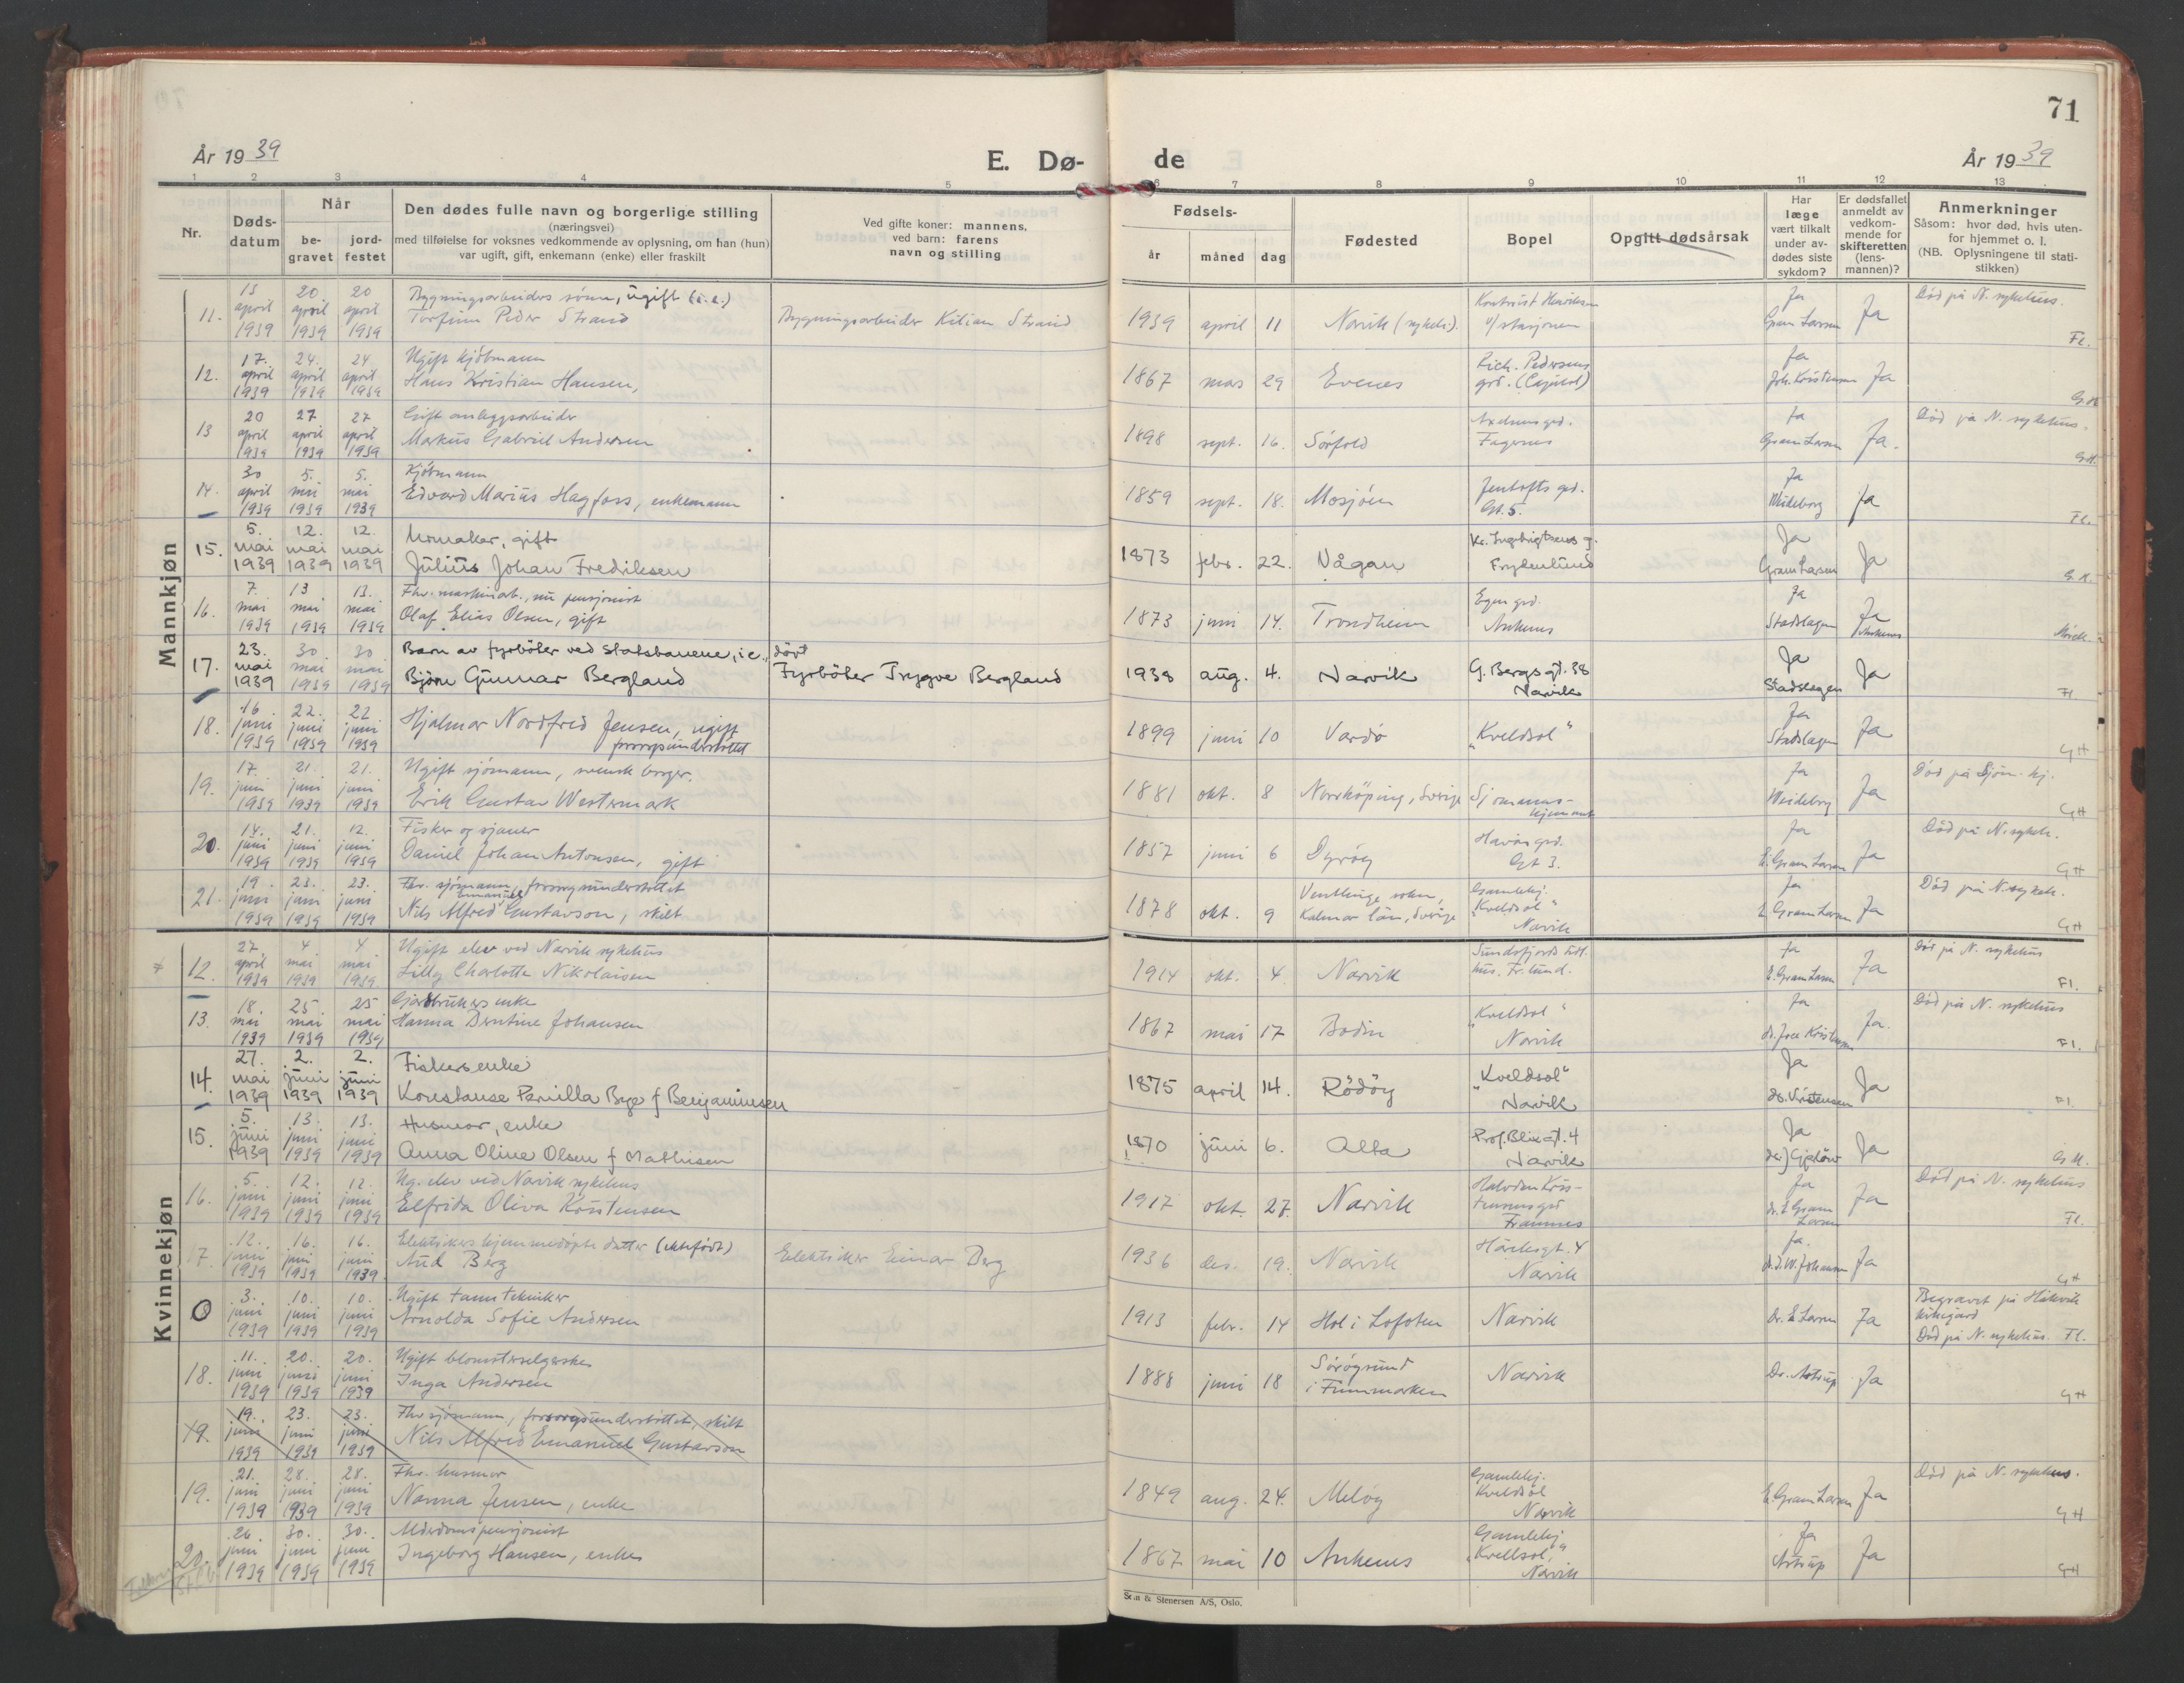 71
År 19 39
E. Dø-
de
År 19 39
1 2 3 4 5 6 7 8 9 10 11 12 13
Nr.
Døds-
datum
Når
be-
gravet
jord-
festet
Den dødes fulle navn og borgerlige stilling
(næringsvei)
med tilføielse for voksnes vedkommende av oplysning, om han (hun)
var ugift, gift, enkemann (enke) eller fraskilt
Ved gifte koner: mannens,
ved barn: farens
navn og stilling
Fødsels-
år
måned
dag
Fødested
Bopel
Opgitt dødsårsak
Har
læge
vært tilkalt
under av-
dødes siste
sykdom?
Er dødsfallet
anmeldt av
vedkom-
mende for
skifteretten
(lens-
mannen)?
Anmerkninger
Såsom: hvor død, hvis uten-
for hjemmet o. l.
(NB. Oplysningene til stati-
stikken)
Mannkjøn
11. april 1939 20 april 1939 20 april 1939
Bygningsarbeiders sønn, ugift
Torfinn Peder Strand
Bygningsarbeider Kilian Strand
1939 april 11 Narvik (sykeh.)
v/ stasjonen
Ja
Gram Larsen
Ja
Død på N. sykehus.
Fl.
12. 17. april 1939 24. april 1939 24 april 1939
Ugift kjöbmann
Hans Kristian Hansen,
1867 mars 29 Evenes
Rich. Pedersens
grd. (Capitol)
Ja
Joh. Kristensen
Ja
G.H
13 20 april 1939 27 april 1939 27 april 1939
Gift anleggsarbeider
Markus Gabriel Andersen
1898 sept. 16. Sörfold
Fagernes
Ja
Gram Larsen
Ja.
Död på N. sykehus.
G.H.
14. 30 april 1939 5. mai 1939 5. mai 1939
Kjöbmann
Edvard Marius Hagfoss, enkemann
1859 sept. 18. Mosjöen
Jentofts grd.
Gt. 5.
Ja
Wideborg
Ja
Fl.
15. 5. mai 1939 12. mai 1939 12. mai 1939
Urmaker, gift
Julius Johan Fredriksen
1873 febr. 22. Någan
Kr. Ingebrigtsens g.
Frydenlund
Ja
Gram Larsen
Ja
G.H.
16. 7. mai 1939 13 mai 1939 13. mai 1939
Fhv. maskinarb., nu pensjonist
Olaf Elias Olsen, gift
1873 juni 14. Trondheim
Egen grd.
Ankenes
Ja
Stadslægen
Ja
Ankenes
17. 23. mai 1939 30 mai 1939 30 mai 1939
Barn av fyrböter ved Statsbanene, i.e., dövt
Björn Gunnar Bergland
Fyrböter Trygve Bergland
1938 aug. 4. Narvik
G. Bergs gt. 38
Narvik
Ja
Stadslægen
Ja
Fl
18. 16. juni 1939 22. juni 1939 22 juni 1939
Hjalmar Nordfred Jensen, ugift
forsorgsunderstöttet
1899 juni 10 Vardö
"Kveldsol"
Ja
Stadslægen
Ja
GH
19. 17. juni 1939 21. juni 1939 21. juni 1939
Ugift sjömann, svensk borger.
Erik Gustav Westermark
1881 okt. 8 Norrköping, Sverige
Sjömanns-
hjemmet
Ja
Wideborg
Ja
Död på Sjöm. hj.
GH
20. 14. juni 1939 21. juni 1939 12. juni 1939
Fisker og sjauer
Daniel Johan Antonsen, gift
1857 juni 6 Dyröy
Gt 3.
Ja
E. Gram Larsen
Ja
Död på N. sykeh.
GH
21. 19. juni 1939 23. juni 1939 23. juni 1939
Fhv. sjömann, forsorgsunderstöttet
Nils Alfred Emanuel Gustavson, skilt
1878 okt. 9
Ventlinge sokn,
Kalmar län, Sverige
Gamlehj.
"Kveldsol"
Narvik
Ja
E. Gram Larsen
Ja
Död på N. sykeh.
GH
Kvinnekjøn
12. 27 april 1939 4 mai 1939 4 mai 1939
Ugift elev ved Narvik sykehus
Lilly Charlotte Nikolaisen
1914 okt. 4. Narvik
hus. Fr.lund.
Ja
E. Gram Larsen
Ja
Död på N. sykehus
Fl.
13. 18. mai 1939 25 mai 1939 25 mai 1939
Gårdbrukers enke
Hanna Berntine Johansen
1867 mai 17 Bodin
"Kveldsol"
Narvik
Ja
Ja.
Död på N. sykehus
Fl.
14. 27. mai 1939 2. juni 1939 2. juni 1939
Fiskers enke
Konstanse Pernilla Bye f Benjaminsen
1875 april 14. Rödöy
"Kveldsol"
Narvik
Ja
dr. Kristensen
Ja
Fl.
15. 5. juni 1939 13. juni 1939 13. juni 1939
Husmor, enke
Anna Oline Olsen f Mathisen
1870 juni 6. Alta
Prof. Blix gt. 4
Narvik
Ja
Ja
G.H.
16. 5. juni 1939 12. juni 1939 12. juni 1939
Ug. elev ved Narvik sykehus
Elfrida Oliva Kristensen
1917 okt. 27. Narvik
Halvdan Kris-
tensens grd
Framnes
Ja
dr. E Gram
Larsen
Ja
Död på N. sykehus
Fl.
17. 12. juni 1939 16. juni 1939 16. juni 1939
Elektrikers hjemmedöpte datter (ektefödt)
Aud Berg
Elektriker Einar Berg
1936 des. 19. Narvik
Håreksgt. 4
Narvik
Ja.
dr. J. W. Johansen
Ja
GH
0 3. juni 1939 10. juni 1939 10. juni 1939
Ugift tanntekniker
Arnolda Sofie Andersen
1913 febr. 14 Hol i Lofoten
Narvik
dr. E Larsen
Ja
Begravet på Håkvik
kirkegård
Död på N. sykehus. Fl.
18. 11. juni 1939 20. juni 1939 20. juni 1939
Ugift blomsterselgerske
Inga Andersen
1888 juni 18
Söröysund
i Finnmarken
Narvik
Dr. Astrup
Ja
GH
19. 19. juni 1939 23. juni 1939 23. juni 1939
Fhv sjömann, forsorgsunderstöttet, skilt
Nils Alfred Emanuel Gustavson
19. 21. juni 1939 28. juni 1939 28. juni 1939
Fhv. husmor
Nanna Jensen, enke
1849 aug. 24. Melöy
Gamlehj.
Kveldsol
Narvik
E. Gram Larsen
Ja
Död på N. sykehus.
GH
20. 26 juni 1939 30. juni 1939 30. juni 1939
Alderdomspensjonist
Ingeborg Hansen, enke
1867 mai 10 Ankenes
Gamlehj.
"Kvellsol,"
Narvik
Ja
Astrup
Ja
GH
& Stenersen A/S, Oslo.